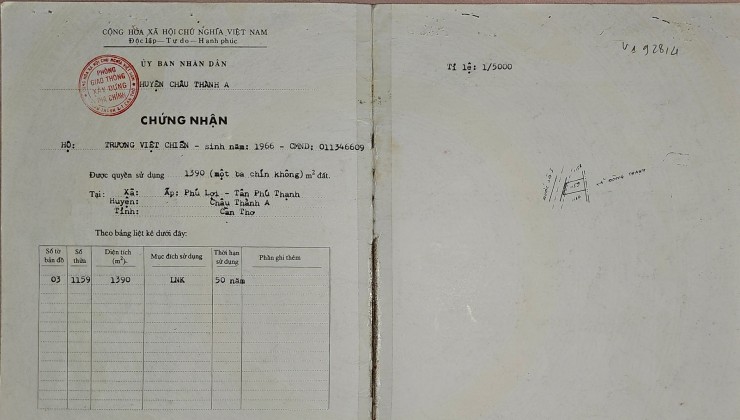 CỘNG HÒA XÃ HỘI CHỦ NGHĨA VIỆT NAM
Độc lập — Tự do — Hạnh phúc
ỦY BAN NHÂN DÂN
HUYỆN CHÂU THÀNH A
PHÒNG
GIAO THÔNG
XÂY DỰNG
ĐỊA CHÍNH
CHỨNG NHẬN
HỘ: TRƯƠNG VIỆT CHIẾN - sinh năm: 1966 - CMND: 011346609
Được quyền sử dụng 1390 (một ba chín không) m² đất.
Tại: Xã: Ấp: Phú Lợi - Tân Phú Thạnh
Huyện: Châu Thành A
Tỉnh: Cần Thơ
Theo bảng liệt kê dưới đây:
Số tờ bản đồ Số thửa Diện tích (m²). Mục đích sử dụng Thời hạn sử dụng Phần ghi thêm
03 1159 1390 LNK 50 năm
V1 92814
Tỉ lệ: 1/5000